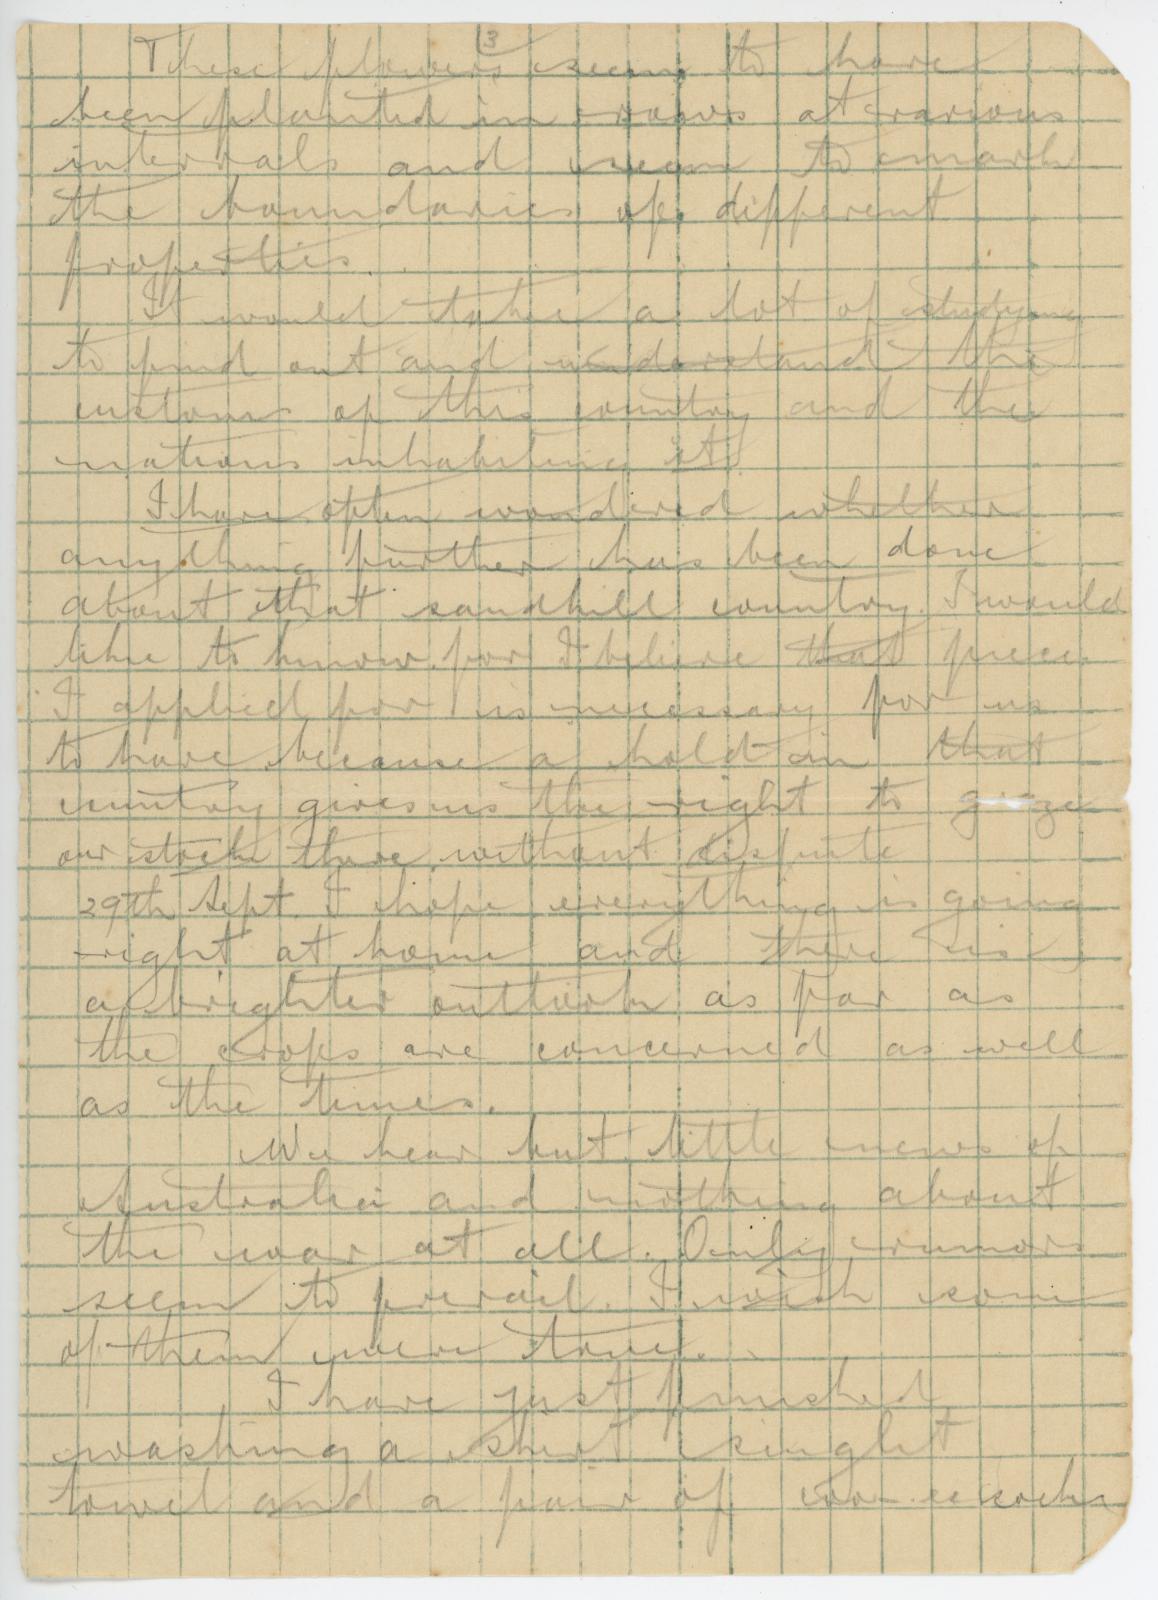 3
These flowers seem to have
been planted in rows at various
intervals and seem to mark
the boundaries of different
properties.
It would take a lot of studying
to find out and understand the
customs of this country and the
nations inhabiting it.
I have often wondered whether
anything further has been done
about that sandhill country. I would
like to know for I believe that piece
I applied for is necessary for us
to have because a hold in that
country gives us the right to graze
our stock there without dispute
29th Sept. I hope everything is going
right at home and there is
a brighter outlook as far as
the crops are concerned as well
as the times.
We hear but little news of
Australia and nothing about
the war at all. Only rumors
seem to prevail. I wish some
of them were true.
I have just finished
washing a shirt singlet
towel and a pair of socks